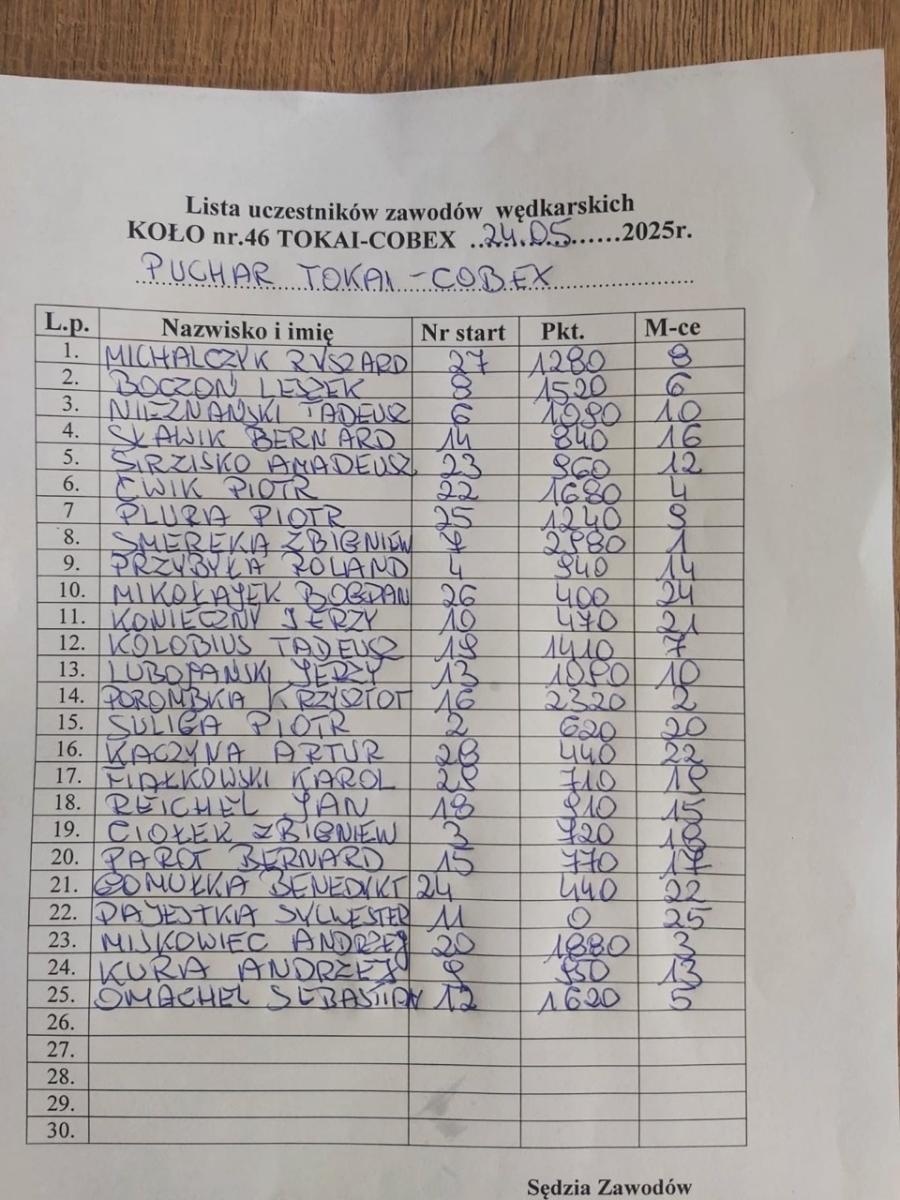 Lista uczestników zawodów wędkarskich
KOŁO nr.46 TOKAI-COBEX ..24.05......2025r.
PUCHAR TOKAI-COBEX
L.p. Nazwisko i imię Nr start Pkt. M-ce
1. MICHALCZYK RYSZARD 27 1280 8
2. BOCZOŃ LESZEK 8 1520 6
3. NIEZNAŃSKI TADEUSZ 6 1080 10
4. SŁAWIK BERNARD 14 840 16
5. SIRZISKO AMADEUSZ 23 960 12
6. ĆWIK PIOTR 22 1680 4
7 PLURA PIOTR 25 1240 9
8. SMEREKA ZBIGNIEW 7 2980 1
9. PRZYBYŁA ROLAND 4 940 14
10. MIKOŁAJEK BOGDAN 26 400 24
11. KONIECZNY JERZY 10 470 21
12. KOLOBIUS TADEUSZ 19 1410 7
13. LUBOPAŃSKI JERZY 13 1080 10
14. POROMBKA KRZYSZTOF 16 2320 2
15. SULIGA PIOTR 2 620 20
16. KACZYNA ARTUR 28 440 22
17. FIAŁKOWSKI KAROL 29 710 19
18. REICHEL JAN 18 910 15
19. CIOŁEK ZBIGNIEW 3 720 18
20. PAROT BERNARD 15 770 17
21. GOMUŁKA BENEDYKT 24 440 22
22. PAJESTKA SYLWESTER 11 0 25
23. MISKOWIEC ANDRZEJ 20 1880 3
24. KURA ANDRZEJ 9 950 13
25. OMACHEL SEBASTIAN 12 1620 5
26.
27.
28.
29.
30.
Sędzia Zawodów